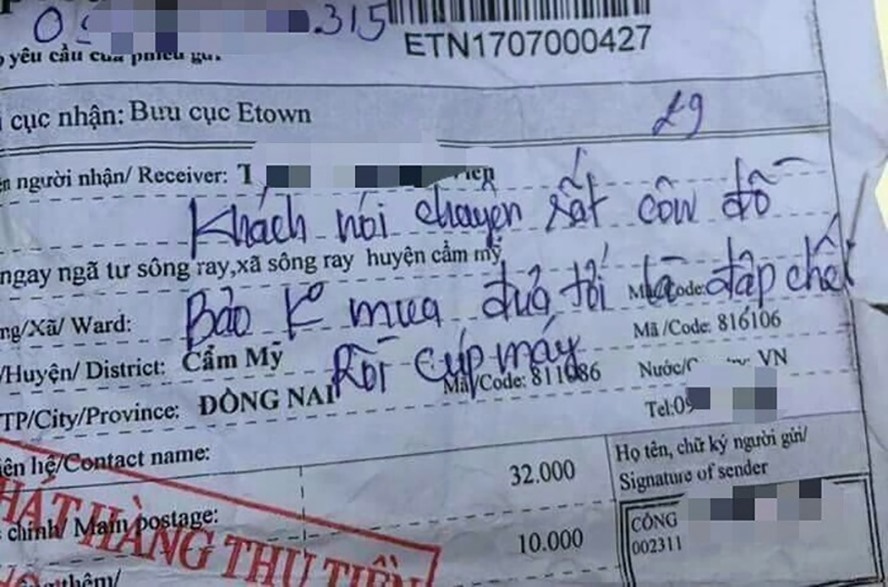 315
ETN1707000427
yêu cầu của phiếu gửi.
cục nhận: Bưu cục Etown
29
người nhận/ Receiver: T
Khách nói chuyện rất côn đồ
ngay ngã tư sông ray,xã sông ray huyện cẩm mỹ
Bảo K° mua đưa tới là đập chết
ng/Xã/ Ward: Mã/Code:
Rồi cúp máy
/Huyện/ District: Cẩm Mỹ Mã/Code: 811086 Mã/Code: 816106
TP/City/Province: ĐỒNG NAI Nước/ VN
Tel:09
iên hệ/Contact name:
32.000 Họ tên, chữ ký người gửi/
Signature of sender
HÁT HÀNG THU TIỀN
chính/ Main postage:
10.000 CÔNG
002311
thêm/